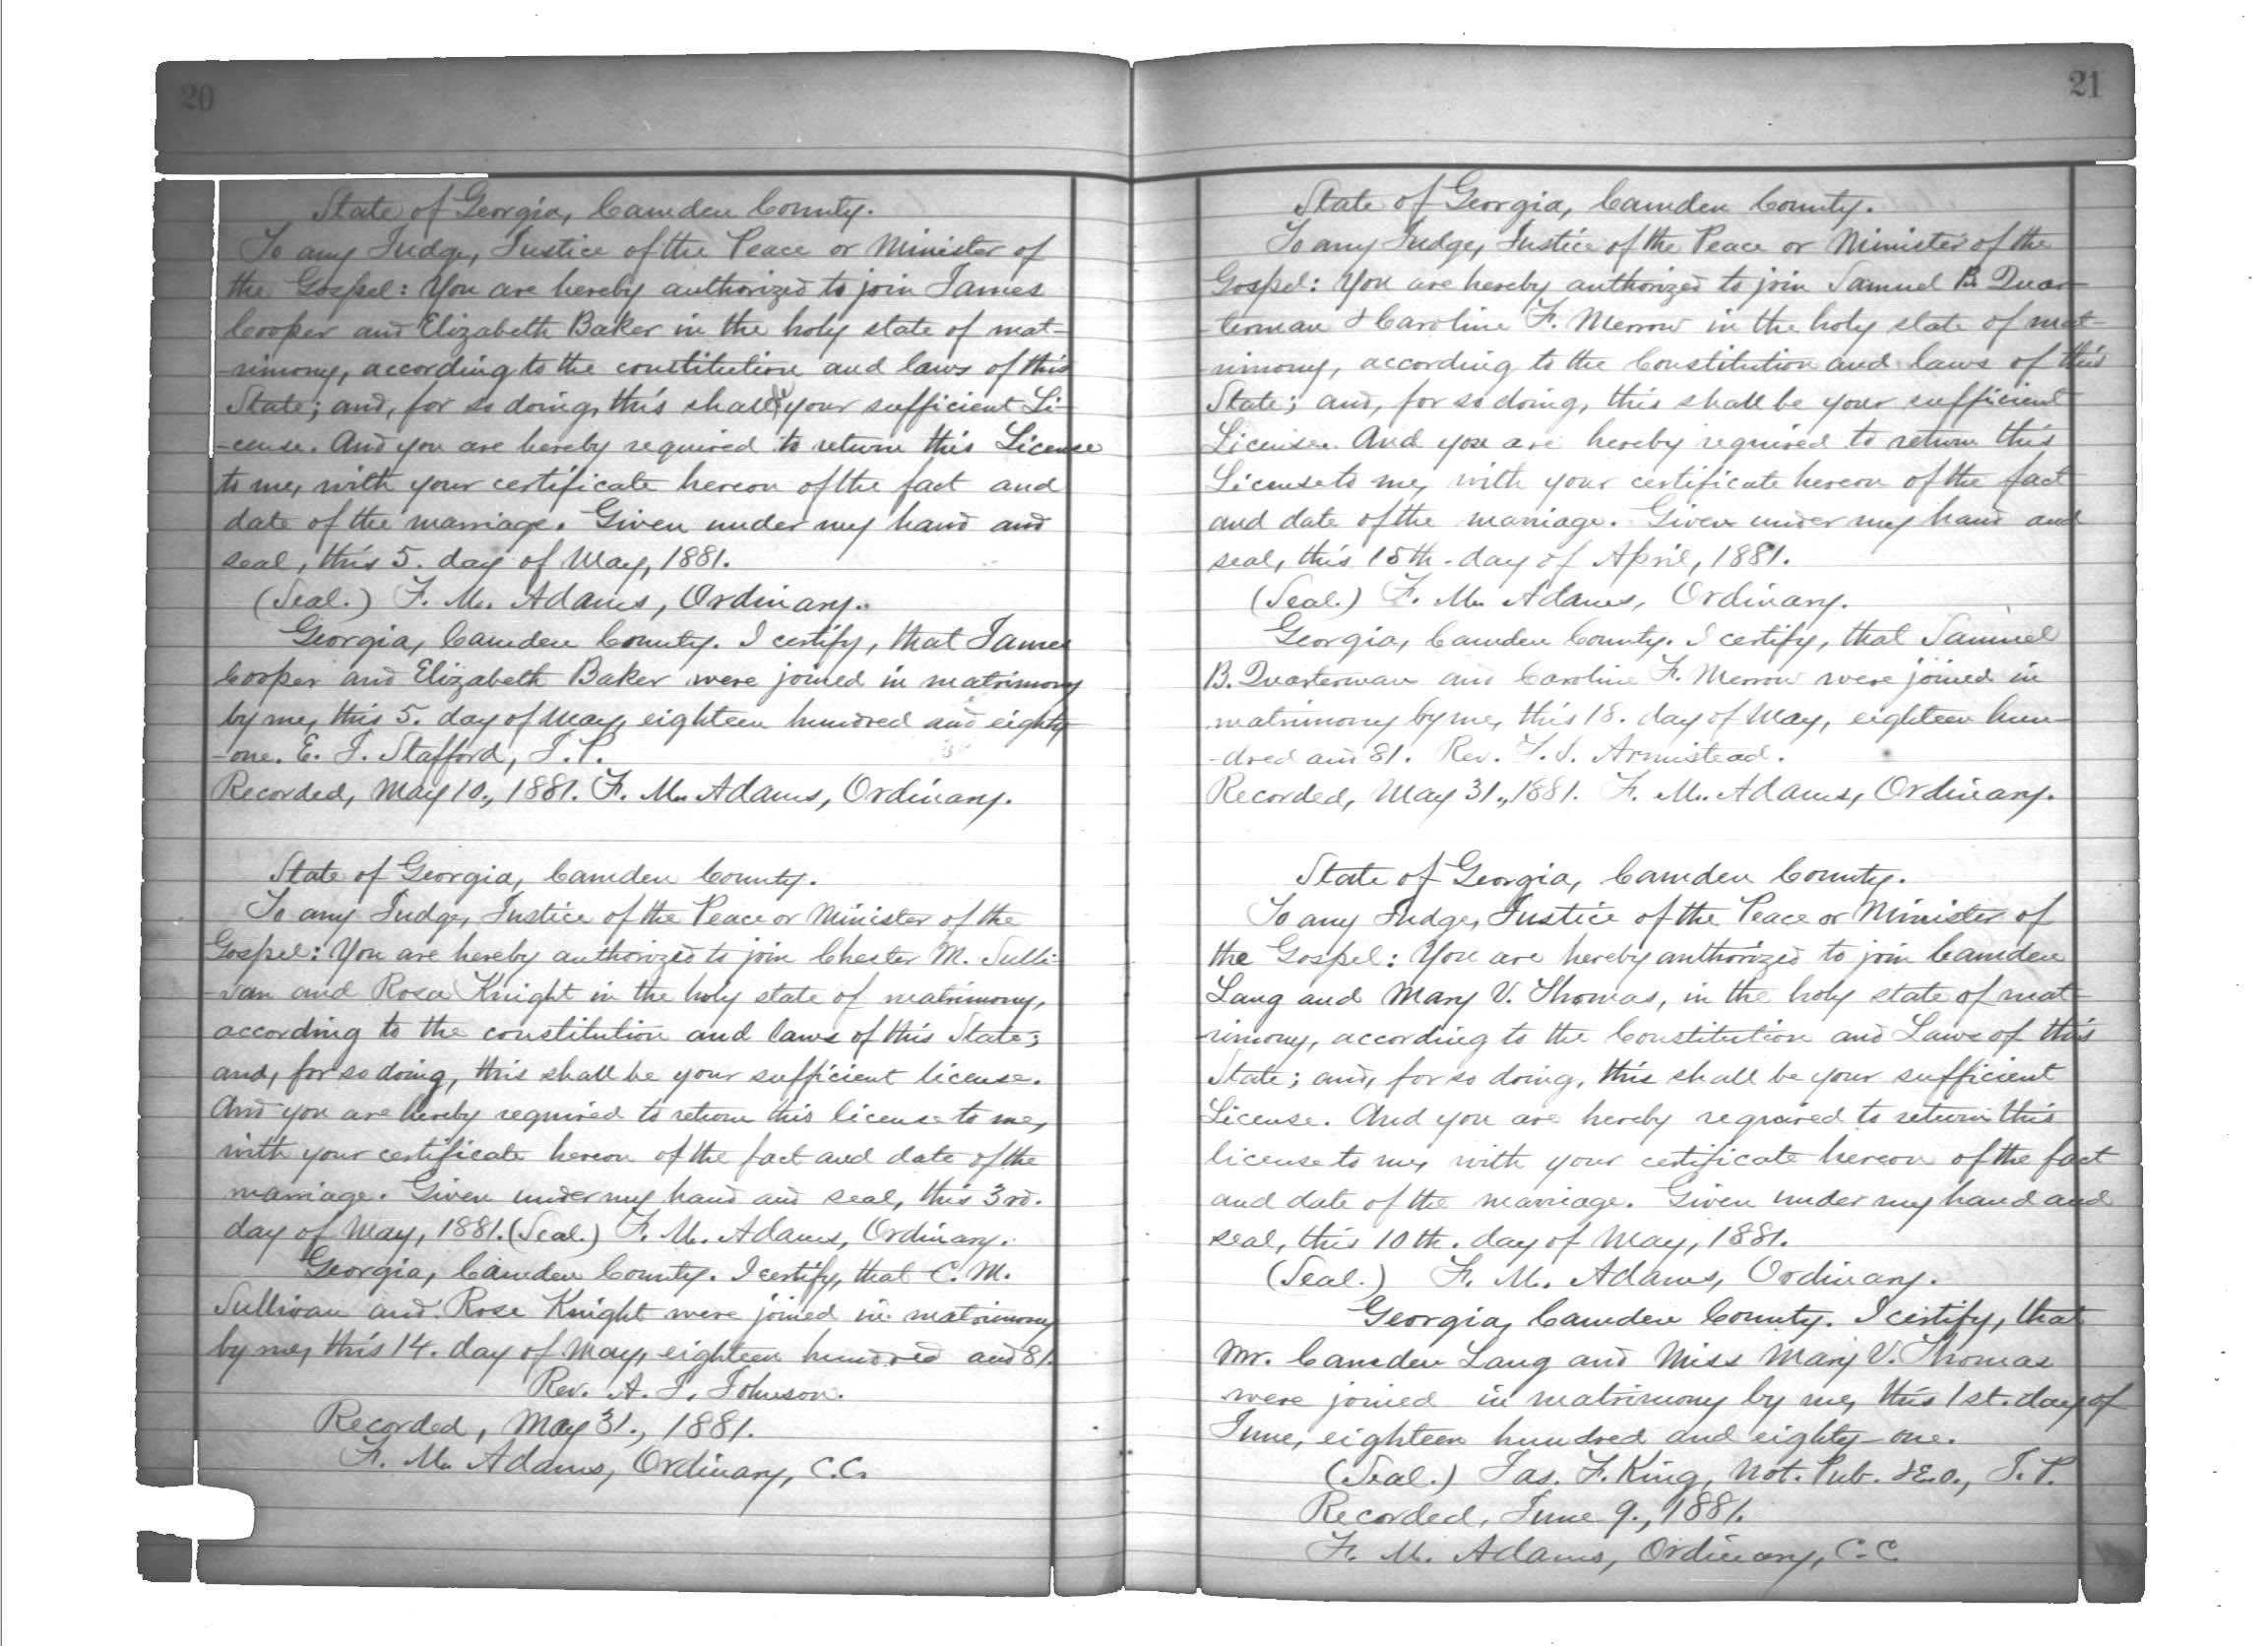 20
State of Georgia, Camden County.
To any Judge, Justice of the Peace or Minister of
the Gospel: You are hereby authorized to join James
Cooper and Elizabeth Baker in the holy state of mat-
-rimony, according to the constitution and laws of this
State; and, for so doing, this shall be your sufficient Li-
-cense. And you are hereby required to return this License
to me, with your certificate hereon of the fact and
date of the marriage. Given under my hand and
seal, this 5. day of May, 1881.
(Seal.) F. M. Adams, Ordinary.
Georgia, Camden County. I certify, that James
Cooper and Elizabeth Baker were joined in matrimony
by me, this 5. day of May, eighteen hundred and eighty
-one. E. J. Stafford, J. P.
Recorded, May 10., 1881. F. M. Adams, Ordinary.
State of Georgia, Camden County.
To any Judge, Justice of the Peace or Minister of the
Gospel: You are hereby authorized to join Chester M. Sulli-
-van and Rosa Knight in the holy state of matrimony,
according to the constitution and laws of this State;
and, for so doing, this shall be your sufficient license.
And you are hereby required to return this license to me,
with your certificate hereon of the fact and date of the
marriage. Given under my hand and seal, this 3rd.
day of May, 1881. (Seal.) F. M. Adams, Ordinary.
Georgia, Camden County. I certify, that C. M.
Sullivan and Rose Knight were joined in matrimony
by me, this 14. day of May, eighteen hundred and 81.
Rev. A. J. Johnson.
Recorded, May 31., 1881.
F. M. Adams, Ordinary, C.C.
21
State of Georgia, Camden County.
To any Judge, Justice of the Peace or Minister of the
Gospel: You are hereby authorized to join Samuel B. Quar-
-terman & Caroline F. Merrow in the holy state of mat-
-rimony, according to the Constitution and laws of this
State; and, for so doing, this shall be your sufficient
License. And you are hereby required to return this
License to me, with your certificate hereon of the fact
and date of the marriage. Given under my hand and
seal, this 15th. day of April, 1881.
(Seal.) F. M. Adams, Ordinary.
Georgia, Camden County. I certify, that Samuel
B. Quarterman and Caroline F. Merrow were joined in
matrimony by me, this 18. day of May, eighteen hun-
-dred and 81. Rev. F. J. Armistead.
Recorded, May 31., 1881. F. M. Adams, Ordinary.
State of Georgia, Camden County.
To any Judge, Justice of the Peace or Minister of
the Gospel: You are hereby authorized to join Camden
Lang and Mary V. Thomas, in the holy state of mat-
-rimony, according to the Constitution and Laws of this
State; and, for so doing, this shall be your sufficient
License. And you are hereby required to return this
license to me, with your certificate hereon of the fact
and date of the marriage. Given under my hand and
seal, this 10th. day of May, 1881.
(Seal.) F. M. Adams, Ordinary.
Georgia, Camden County. I certify, that
Mr. Camden Lang and Miss Mary V. Thomas
were joined in matrimony by me, this 1st. day of
June, eighteen hundred and eighty-one.
(Seal.) Jas. F. King, Not. Pub. & E.O., J. P.
Recorded, June 9., 1881.
F. M. Adams, Ordinary, C.C.